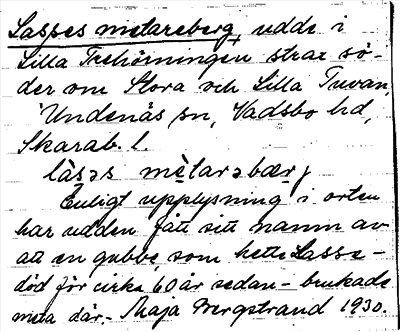 Lasses metareberg, udde i
Lilla Trehörningen strax sö-
der om Stora och Lilla Tuvan,
Undenäs sn, Vadsbo hd,
Skarab. l.
làsəs mètarəbærj
Enligt upplysning i orten
har udden fått sitt namn av
att en gubbe, som hette Lasse –
död för cirka 60 år sedan – brukade
meta där. – Maja Bergstrand 1930.